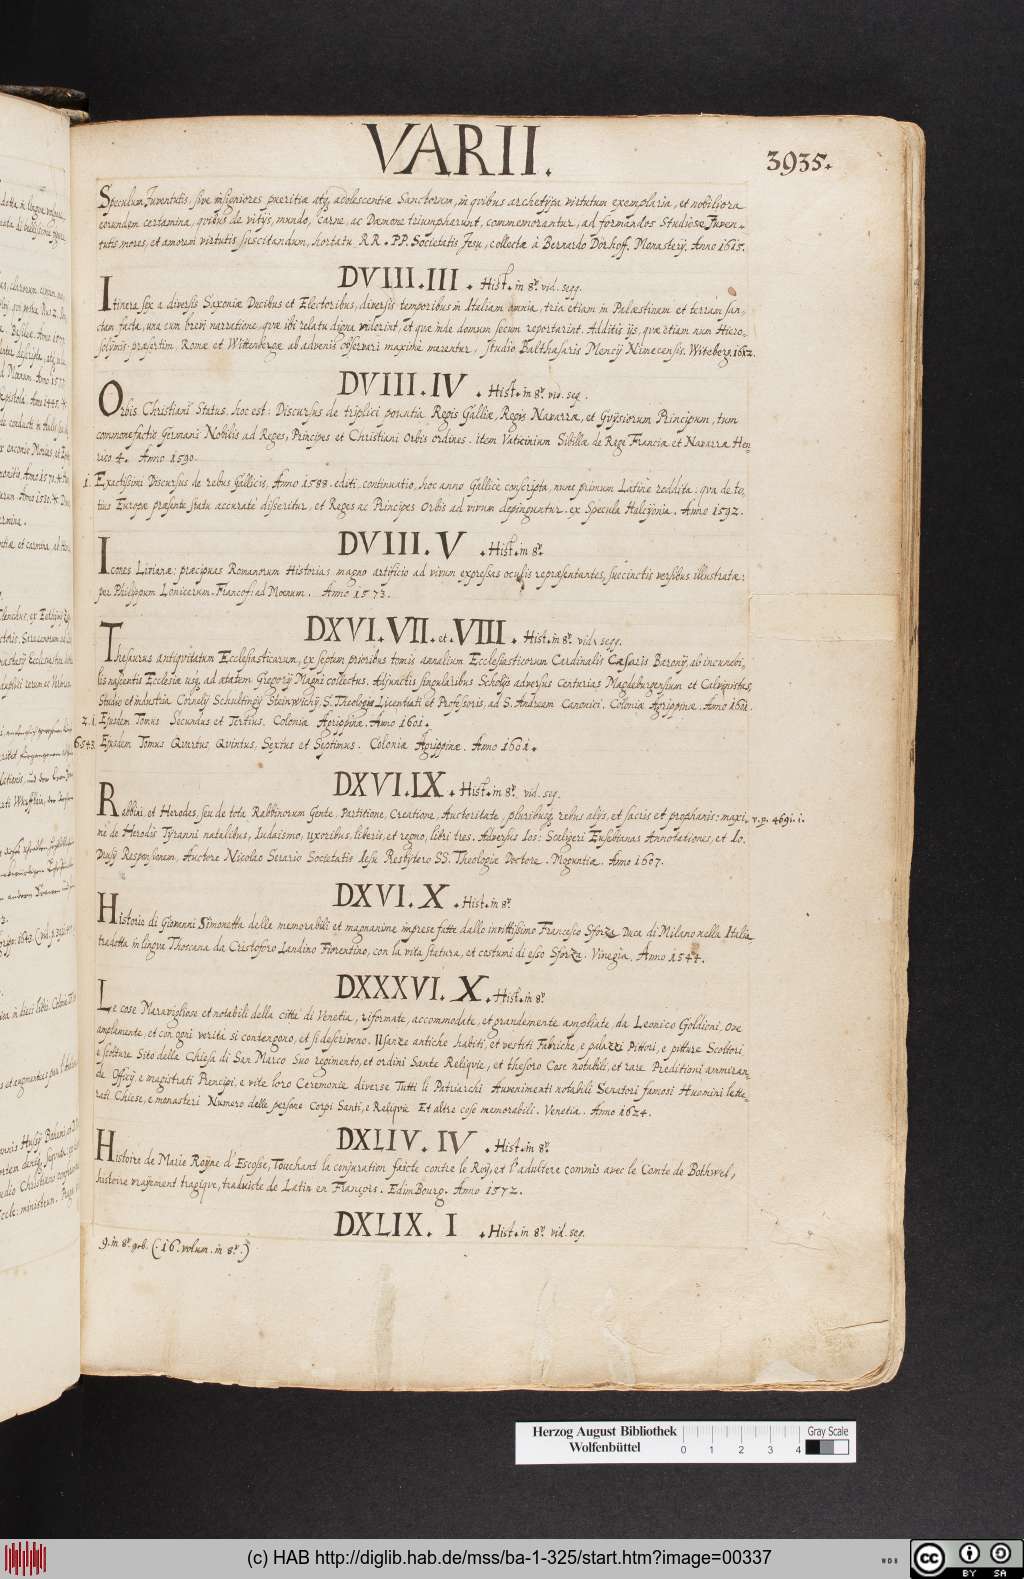 VARII.
3935.
Speculum Juventutis, sive insigniores pueritia atq, adolescentia Sanctorum, in quibus archetypa virtutum exemplaria, et nobiliora
eorundem certamina, quibus de vitijs, mundo, carne, ac Dæmone triumpharunt, commemorantur, ad formandos Studiosæ Juven-
tutis mores, et amorem virtutis suscitandum, hortatu RR. PP. Societatis Jesu, collectæ à Bernardo Dörhoff. Monasterij. Anno 1615.
DVIII. III . Hist. in 8º. vid. segg.
Itinera sex a diversis Saxoniæ Ducibus et Electoribus, diversis temporibus in Italiam omnia, tria etiam in Palæstinam et terram san,
ctam facta, una cum brevi narratione, quæ ibi relatu digna viderint, et quæ inde domum secum reportarint. Additis iis, quæ etiam num Hiero-
solymis, præsertim Romæ et Wittenbergæ ab advenis observari maximè merentur. Studio Balthasaris Mencij Nimecensis. Witeberg. 1612.
DVIII. IV . Hist. in 8º. vid. seg.
Orbis Christiani Status, hoc est: Discursus de triplici potentia Regis Galliæ, Regis Navarræ, et Guysiorum Principum, tum
commonefactio Germani Nobilis ad Reges, Principes et Christiani Orbis ordines. item Vaticinium Sibillæ de Rege Franciæ et Navarræ Hen-
rico 4. Anno 1590.
1. Exactissimi Discursus de rebus Gallicis, Anno 1588. editi, continuatio, hoc anno Gallicè conscripta, nunc primum Latinè reddita: qua de to,
tius Europæ præsente statu accuratè disseritur, et Reges ac Principes Orbis ad vivum depinguntur. ex Specula Halcyonia. Anno 1592.
DVIII. V . Hist. in 8º.
Icones Livianæ; præcipuas Romanorum Historias magno artificio ad vivum expressas oculis repræsentantes, succinctis versibus illustratæ:
per Philippum Lonicerum. Francof: ad Moenum. Anno 1573.
DXVI. VII. et. VIII . Hist. in 8º. vid. segg.
Thesaurus antiquitatum Ecclesiasticarum, ex septem prioribus tomis annalium Ecclesiasticorum Cardinalis Cæsaris Baronij, ab incunabi-
lis nascentis Ecclesiæ usq, ad ætatem Gregorij Magni collectus. Adjunctis singularibus Scholijs adversus Centurias Magdeburgensium et Calvinistas,
Studio et industria Cornelij Schultingij Steinwichij, S. Theologiæ Licentiati et Professoris, ad S. Andream Canonici. Coloniæ Agrippinæ. Anno 1601.
2. 1. Ejusdem Tomus Secundus et Tertius. Coloniæ Agrippinæ. Anno 1601.
6.5.4.3. Ejusdem Tomus Quartus Quintus, Sextus et Septimus. Coloniæ Agrippinæ. Anno 1601.
DXVI. IX . Hist. in 8º. vid. seg.
Rabbini et Herodes, seu de tota Rabbinorum Gente, Partitione, Creatione, Auctoritate, pluribusq, rebus alijs, et sacris et prophanis: maxi, v. p. 4691. i.
mè de Herodis Tyranni natalibus, Iudaismo, uxoribus, liberis, et regno, libri tres. Adversus Ios: Scaligeri Eusebianas Annotationes, et Io.
Drusij Responsionem, Auctore Nicolao Serario Societatis Iesu Presbytero SS. Theologiæ Doctore. Moguntiæ. Anno 1607.
DXVI. X . Hist. in 8º.
Historie di Giovanni Simonetta delle memorabili et magnanime imprese fatte dallo invittissimo Francesco Sforza Duca di Milano nella Italia
tradotta in lingua Thoscana da Cristoforo Landino Fiorentino, con la vita statura, et costumi di esso Sforza. Vinegia. Anno 1544.
DXXXVI. X . Hist. in 8º
Le cose Maravigliose et notabili della città di Venetia, riformate, accommodate, et grandemente ampliate, da Leonico Goldioni. Ove
amplamente, et con ogni verità si contengono, et si descriveno. Usanze antiche habiti, et vestiti Fabriche, e palazzi Pittori, e pitture Scoltori
e scolture Sito della Chiesa di San Marco Suo regimento, et ordini Sante Reliquie, et thesoro Cose notabili, et rare Preditioni ammiran-
de Officij, e magistrati Prencipi, e vite loro Ceremonie diverse Tutti li Patriarchi Auvenimenti notabili Senatori famosi Huomini lette-
rati Chiese, e monasteri Numero delle persone Corpi Santi, e Reliquie Et altre cose memorabili. Venetia. Anno 1624.
DXLIV. IV . Hist. in 8º.
Histoire de Marie Royne d'Escosse, Touchant la conjuration faicte contre le Roy, et l'adultere commis avec le Comte de Bothwel,
histoire vrayement tragique, traduicte de Latin en François. EdimBourg. Anno 1572.
DXLIX. I . Hist. in 8º. vid. seg.
9. in 8º. geb. (. 16. volum. in 8º.)
Herzog August Bibliothek
Wolfenbüttel
0 1 2 3 4
Gray Scale
(c) HAB http://diglib.hab.de/mss/ba-1-325/start.htm?image=00337
WDB
cc BY SA